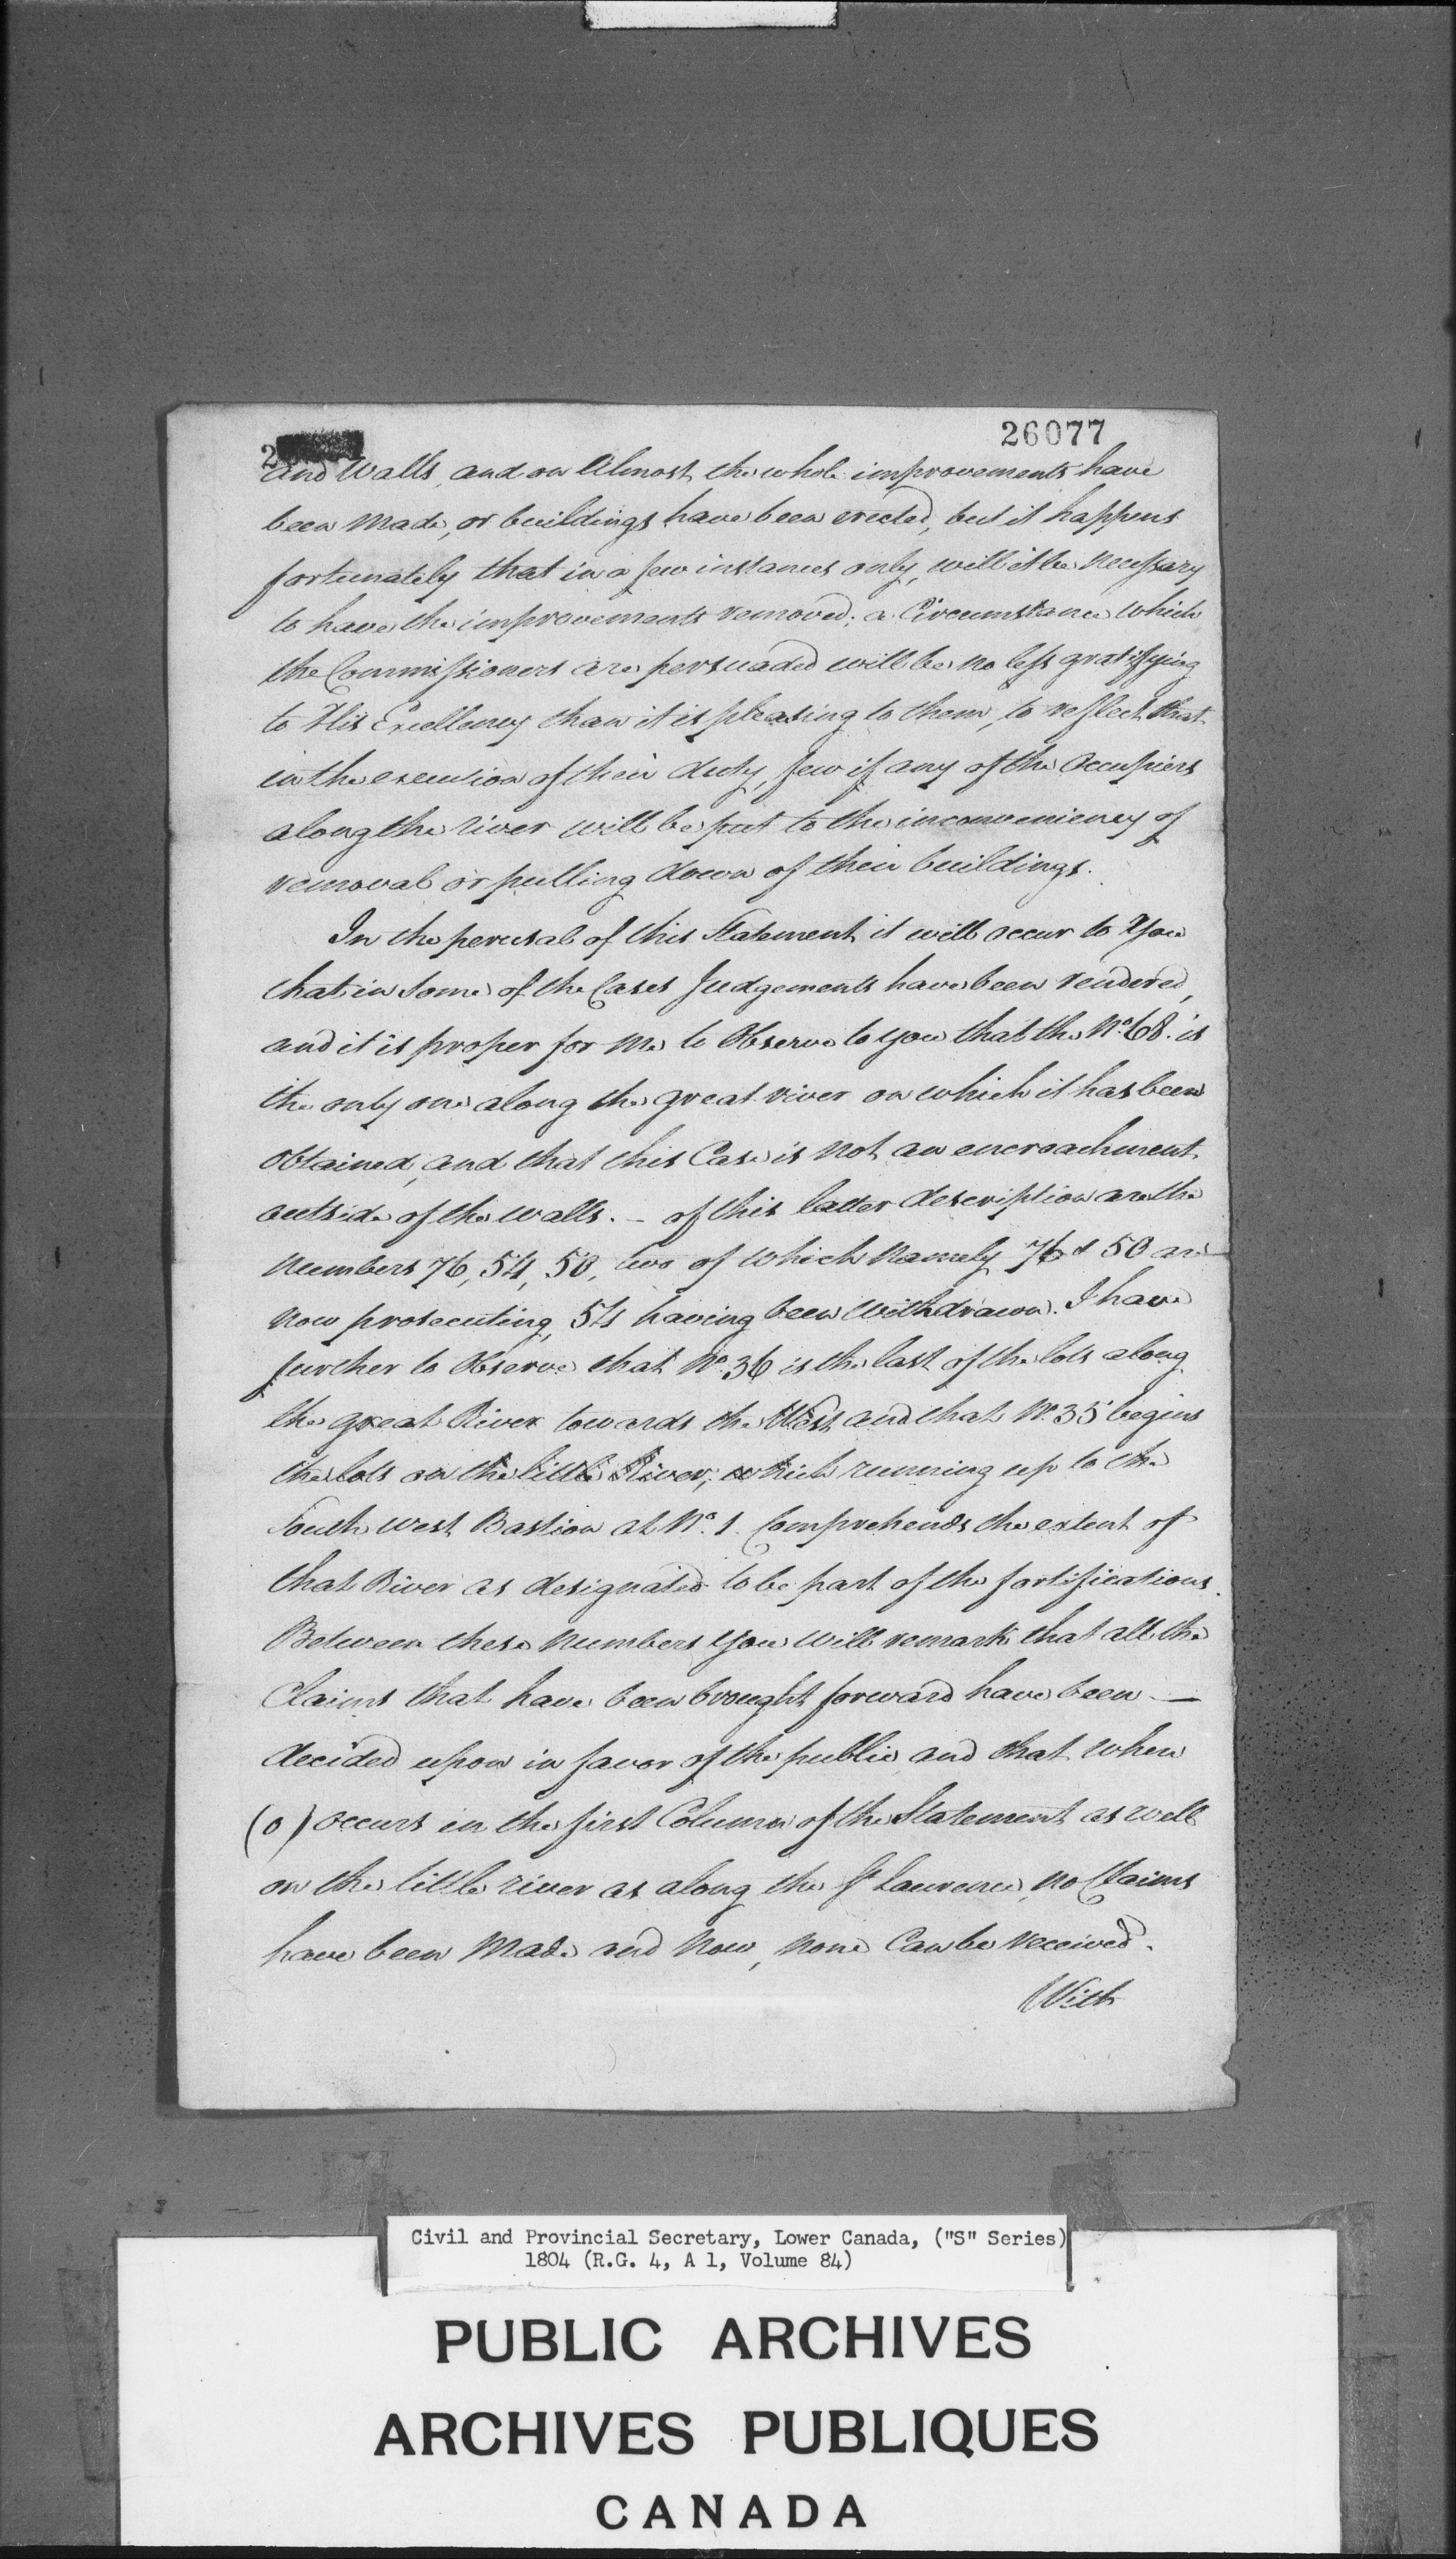 26077
2
and Walls, and on Almost the whole improvements have
been Made, or buildings have been erected, but it happens
fortunately that in a few instances only, will it be necessary
to have the improvements removed; a Circumstance which
the Commissioners are persuaded will be no less gratifying
to His Excellency than it is pleasing to them, to reflect that
in the execution of their duty, few if any of the Occupiers
along the river will be put to the inconveniency of
removal or pulling down of their buildings.
In the perusal of this Statement it will occur to You
that in Some of the Cases Judgements have been rendered,
and it is proper for Me to Observe to you that the No. 68. is
the only one along the great river on which it has been
Obtained, and that this Case is Not an encroachment
outside of the walls. – of this latter description are the
Numbers 76, 54, 50, two of which Namely 76 & 50 are
Now prosecuting, 54 having been Withdrawn. I have
further to Observe that No. 36 is the last of the lots along
the great River towards the West and that No. 35 begins
the lots on the little River, which running up to the
South West Bastion at No. 1. Comprehends the extent of
that River as designated to be part of the fortifications.
Between these Numbers you will remark that all the
Claims that have been brought forward have been —
decided upon in favor of the public and that when
(0) occurs in the first Column of the Statement as well
on the little river as along the St Laurence, no Claims
have been Made and Now, None Can be received.
With
Civil and Provincial Secretary, Lower Canada, ("S" Series)
1804 (R.G. 4, A 1, Volume 84)
PUBLIC ARCHIVES
ARCHIVES PUBLIQUES
CANADA